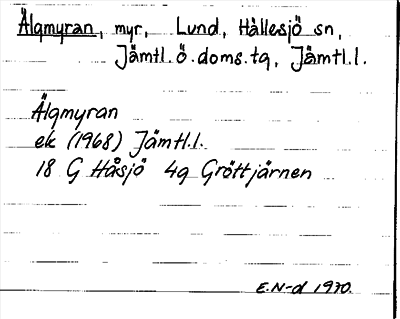 Älgmyran, myr, Lund, Hällesjö sn,
Jämtl. Ö. doms. tg, Jämtl. l.
Älgmyran
ek (1968) Jämtl. l.
18 G Håsjö 4g Gröttjärnen
E.N-d 1970.